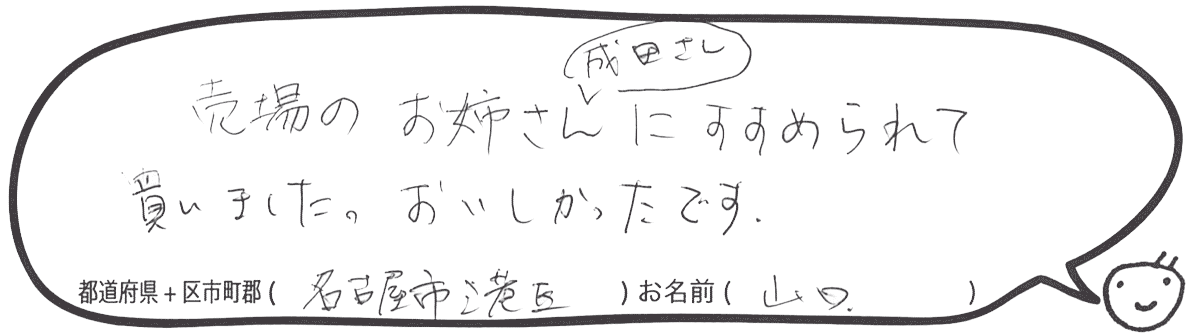 成田さん
売場のお姉さんにすすめられて
買いました。おいしかったです.
都道府県+区市町郡(名古屋市港区)お名前(山口.)